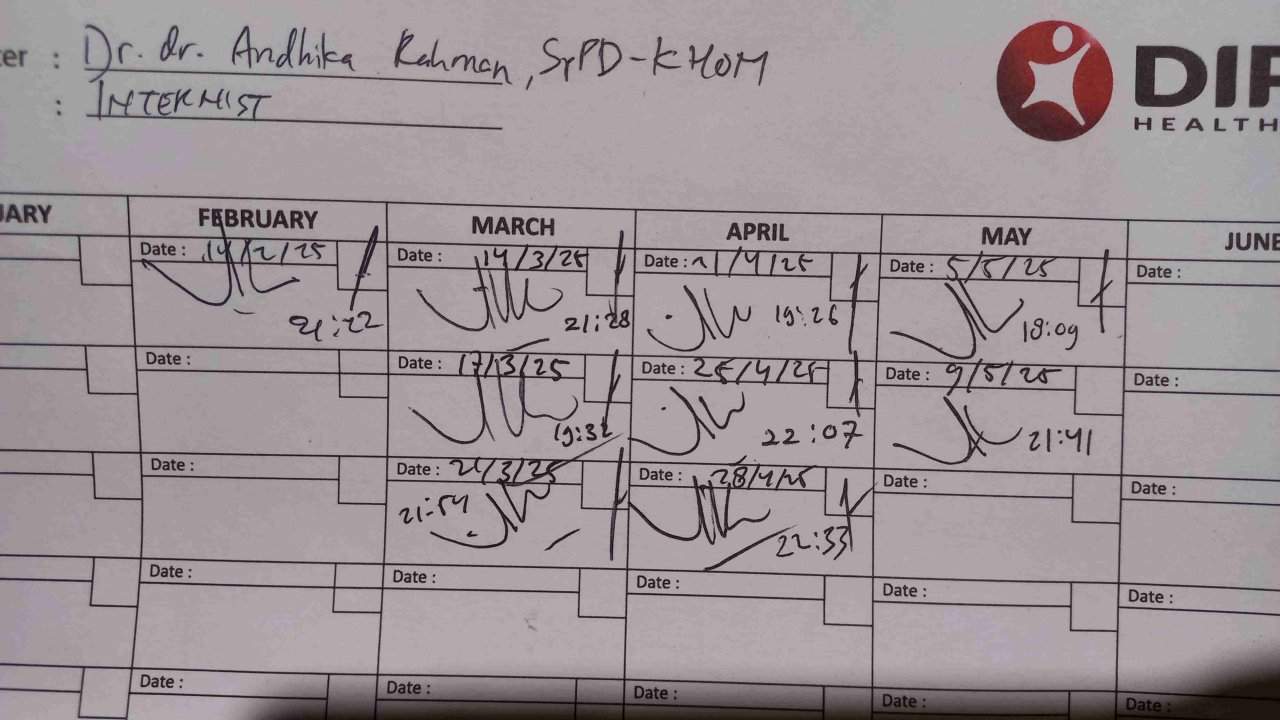 : Dr. dr. Andhika Rahman, SpPD-KHOM
: INTERNIST
DIP
HEALTH
FEBRUARY MARCH APRIL MAY JUNE
Date : 14/2/25 Date : 14/3/25 Date : 21/4/25 Date : 5/5/25 Date :
21:22 21:28 19:26 18:09
Date : Date : 17/3/25 Date : 25/4/25 Date : 9/5/25 Date :
19:32 22:07 21:41
Date : Date : 21/3/25 Date : 28/4/25 Date : Date :
21:54 22:33
Date : Date : Date : Date : Date :
Date : Date : Date : Date : Date :